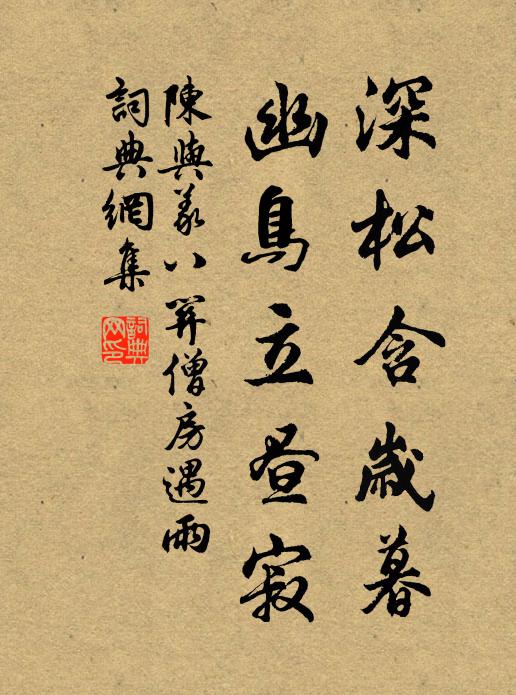 深松含歲暮
幽鳥立晝寂
陳與義八關僧房遇雨
詞典網集
詞典網印